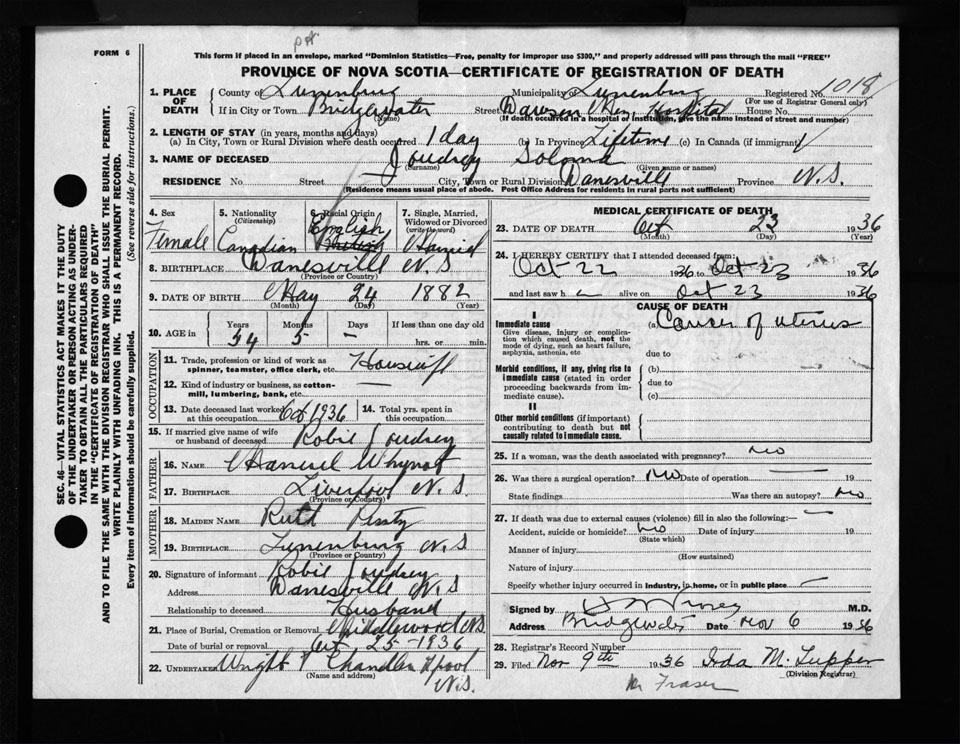 FORM 6
This form if placed in an envelope, marked "Dominion Statistics—Free, penalty for improper use $300," and properly addressed will pass through the mail "FREE"
PROVINCE OF NOVA SCOTIA—CERTIFICATE OF REGISTRATION OF DEATH
SEC. 46—VITAL STATISTICS ACT MAKES IT THE DUTY
OF THE UNDERTAKER OR PERSON ACTING AS UNDER-
TAKER TO OBTAIN ALL THE PARTICULARS REQUIRED
IN THE "CERTIFICATE OF REGISTRATION OF DEATH"
AND TO FILE THE SAME WITH THE DIVISION REGISTRAR WHO SHALL ISSUE THE BURIAL PERMIT.
WRITE PLAINLY WITH UNFADING INK. THIS IS A PERMANENT RECORD.
Every item of information should be carefully supplied. (See reverse side for instructions.)
1. PLACE OF DEATH
County of Lunenburg Municipality of Lunenburg Registered No. 1018
(For use of Registrar General only)
If in City or Town Bridgewater Street Dawson Mem. Hospital House No.
(Name) (If death occurred in a hospital or institution, give the name instead of street and number)
2. LENGTH OF STAY (in years, months and days)
(a) In City, Town or Rural Division where death occurred 1 day (b) In Province Lifetime (c) In Canada (if immigrant)
3. NAME OF DECEASED Joudrey Soloma
(Surname) (Given name or names)
RESIDENCE No. Street City, Town or Rural Division Danesville Province N.S.
(Residence means usual place of abode. Post Office Address for residents in rural parts not sufficient)
4. Sex Female
5. Nationality (Citizenship) Canadian
Racial Origin English
7. Single, Married, Widowed or Divorced (write the word) Married
8. BIRTHPLACE Danesville N.S
(Province or Country)
9. DATE OF BIRTH May 24 1882
(Month) (Day) (Year)
10. AGE in Years 54 Months 5 Days — If less than one day old hrs. or min.
OCCUPATION
11. Trade, profession or kind of work as spinner, teamster, office clerk, etc. Housewife
12. Kind of industry or business, as cotton-mill, lumbering, bank, etc. —
13. Date deceased last worked at this occupation. Oct 1936
14. Total yrs. spent in this occupation.
15. If married give name of wife or husband of deceased Robie Joudrey
FATHER
16. NAME Whynot
17. BIRTHPLACE Liverpool N.S.
(Province or Country)
MOTHER
18. MAIDEN NAME Ruth
19. BIRTHPLACE Lunenburg N.S
(Province or Country)
20. Signature of informant Robie Joudrey
Address Danesville N.S
Relationship to deceased Husband
21. Place of Burial, Cremation or Removal Middlewood N.S.
Date of burial or removal Oct 25-1936
22. UNDERTAKER Wright & Chandler Lpool
(Name and address) N.S.
MEDICAL CERTIFICATE OF DEATH
23. DATE OF DEATH Oct 23 1936
(Month) (Day) (Year)
24. I HEREBY CERTIFY that I attended deceased from:
Oct 22 1936 to Oct 23 1936
and last saw h alive on Oct 23 1936
CAUSE OF DEATH
I
Immediate cause
Give disease, injury or complication which caused death, not the mode of dying, such as heart failure, asphyxia, asthenia, etc
(a) Cancer of uterus
due to
Morbid conditions, if any, giving rise to immediate cause (stated in order proceeding backwards from immediate cause).
(b)
due to
(c)
II
Other morbid conditions (if important) contributing to death but not causally related to immediate cause.
25. If a woman, was the death associated with pregnancy? No
26. Was there a surgical operation? No Date of operation 19
State findings Was there an autopsy? No
27. If death was due to external causes (violence) fill in also the following:—
Accident, suicide or homicide? No Date of injury 19
(State which)
Manner of injury
(How sustained)
Nature of injury
Specify whether injury occurred in industry, in home, or in public place —
Signed by M.D.
Address Bridgewater Date Nov 6 1936
28. Registrar's Record Number
29. Filed Nov 9th 1936 Ida M. Tupper
(Division Registrar)
Mr Fraser